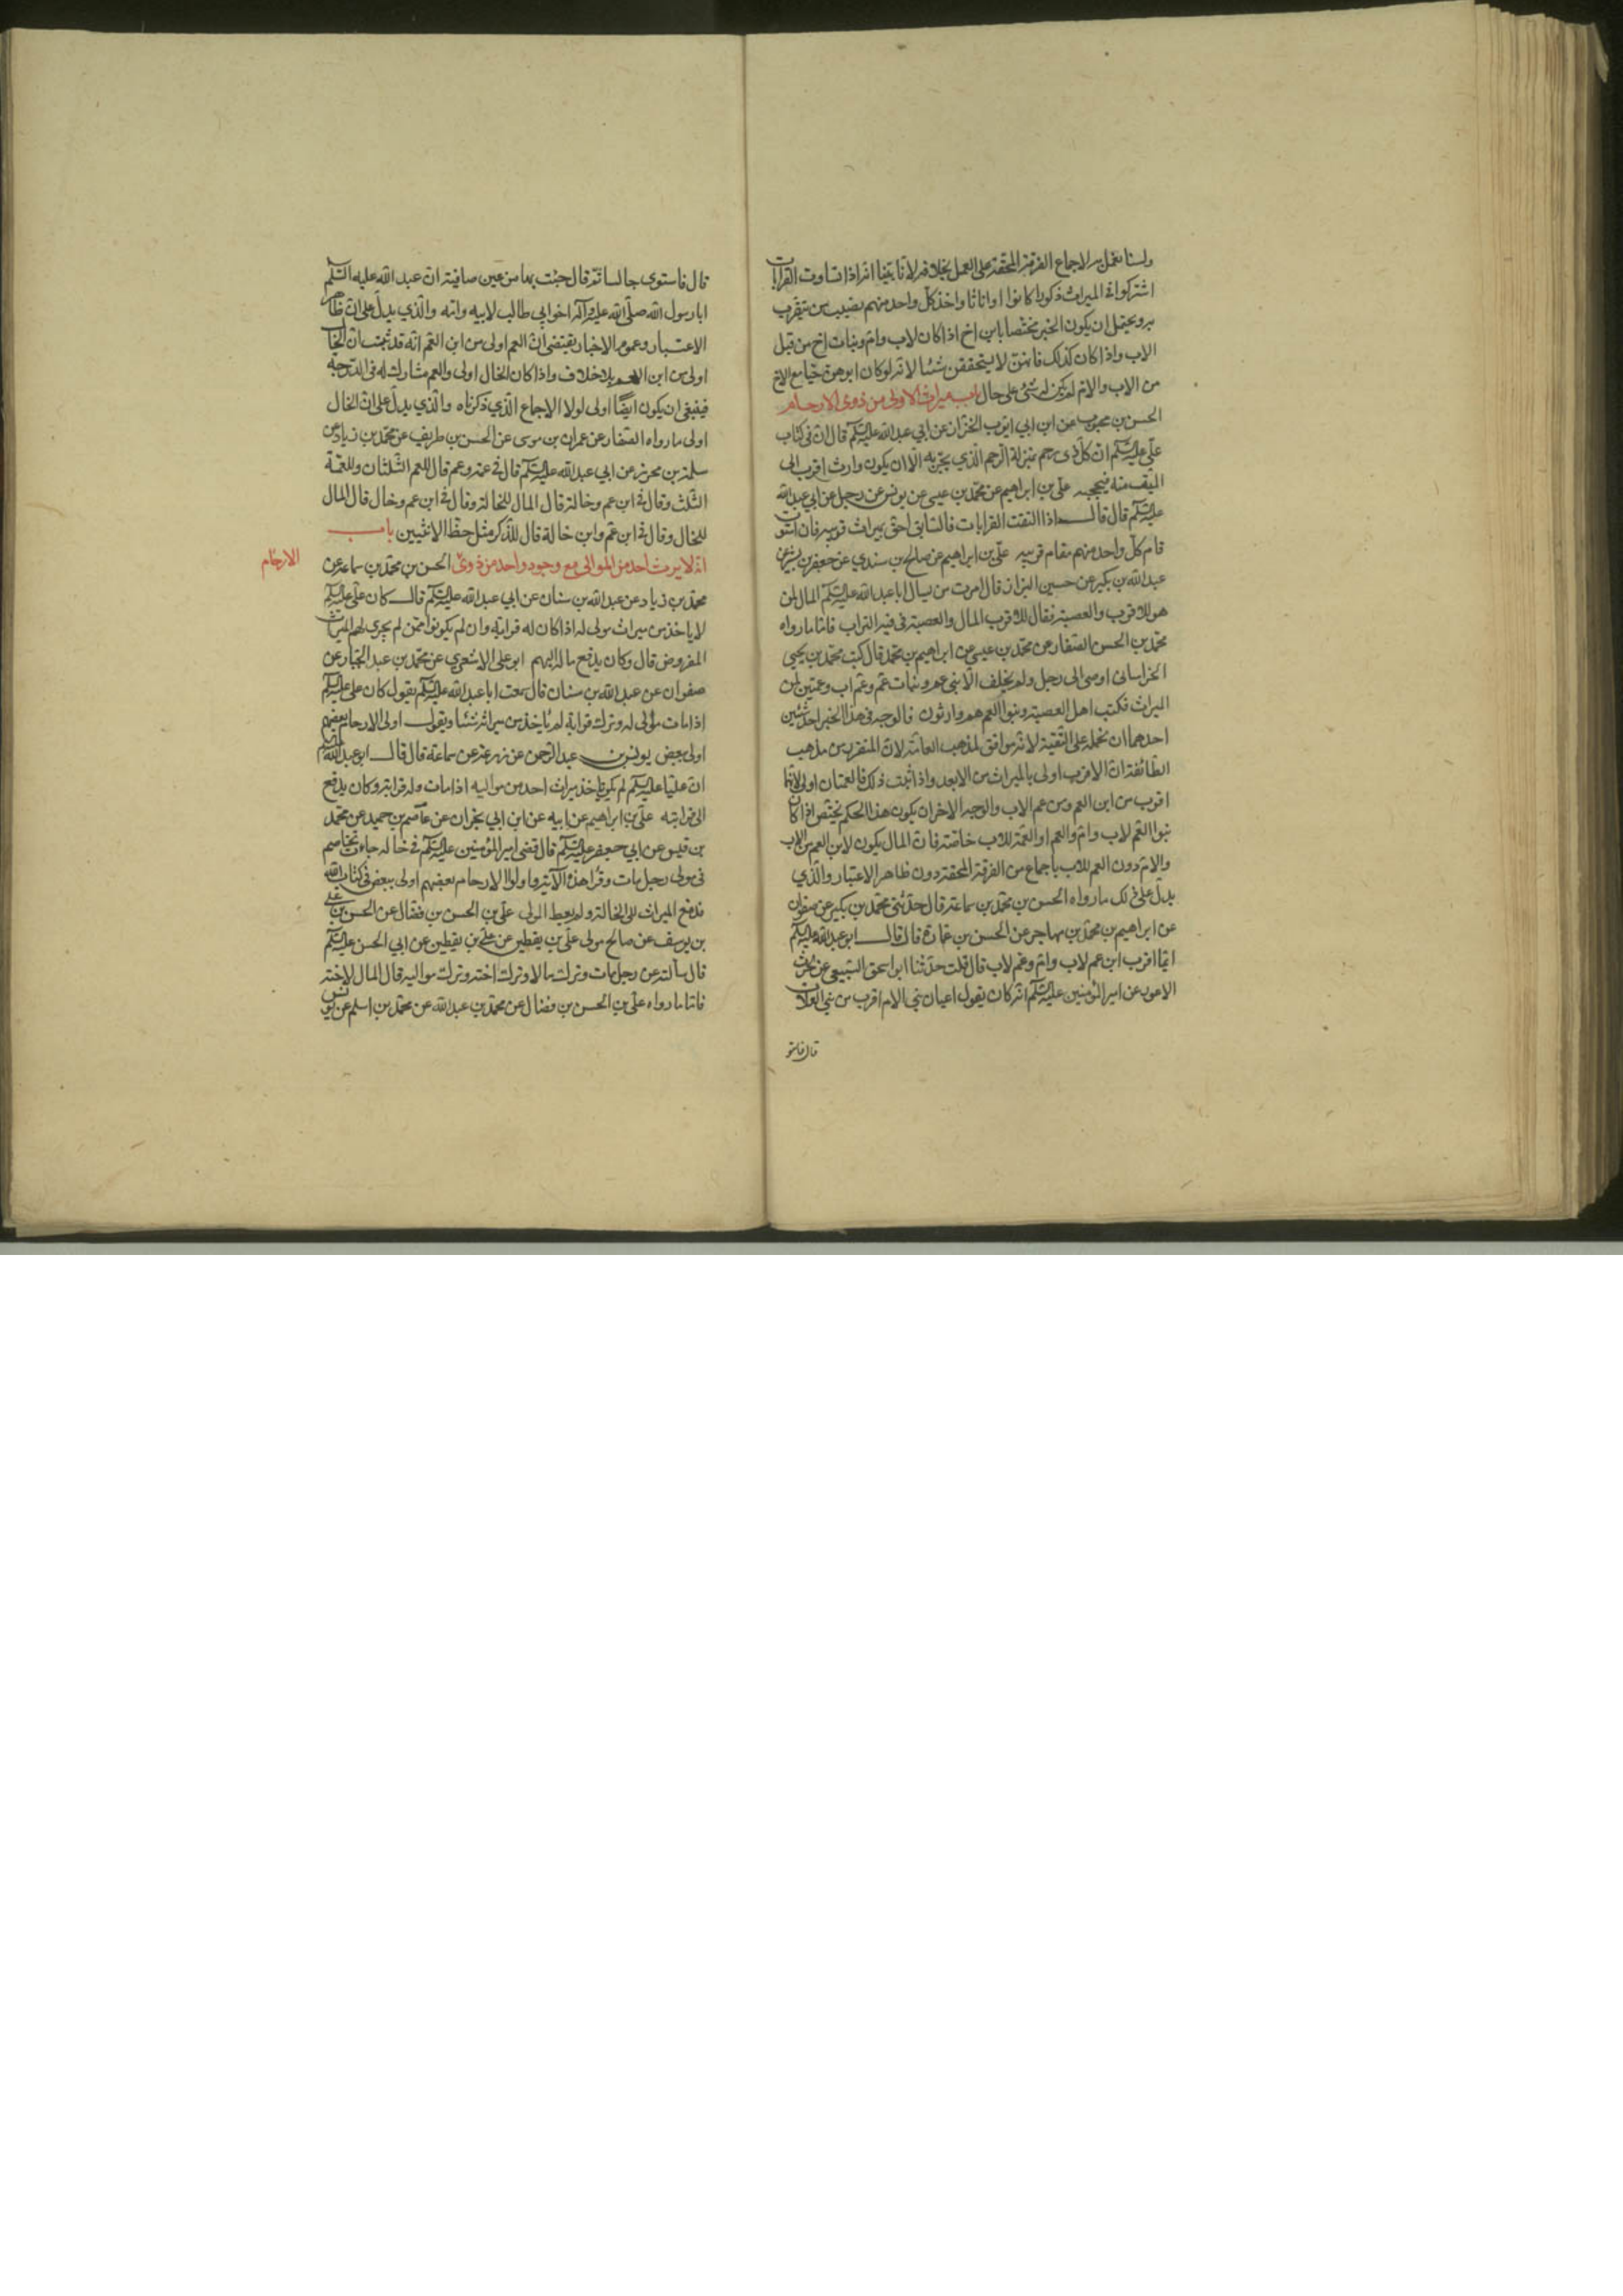 ولسنا نعمل به لاجماع الفرقة المحقة على العمل بخلافه لانا بينا انه اذا تساوت القرابات
اشتركوا في الميراث ذكورا كانوا او اناثا واخذ كل واحد منهم نصيب من يتقرب
به ويحتمل ان يكون الخبر مختصا بابن اخ اذا كان لاب وام وبنات اخ من قبل
الاب واذا كان كذلك فانهن لا يستحققن شيئا لانه لو كان ابوهن حيا مع الاخ
من الاب والام لم يكن له شئ على حال باب ميراث الاولى من ذوى الارحام
الحسن بن محبوب عن ابن ابي ايوب الخزاز عن ابي عبد الله عليه السلم قال ان في كتاب
علي عليه السلم ان كل ذي رحم بمنزلة الرحم الذي يجر به الا ان يكون وارث اقرب الى
الميت منه فيحجبه علي بن ابراهيم عن محمد بن عيسى عن يونس عن رجل عن ابي عبد الله
عليه السلم قال قال اذا التفت القرابات فالسابق احق بميراث قريبه فان استوت
قام كل واحد منهم مقام قريبه علي بن ابراهيم عن صالح بن سندي عن جعفر بن بشير عن
عبد الله بن بكير عن حسين البزاز قال امرت من يسال ابا عبد الله عليه السلم المال لمن
هو للاقرب والعصبة فقال للاقرب المال والعصبة في فيه التراب فاما ما رواه
محمد بن الحسن الصفار عن محمد بن عيسى عن ابراهيم بن محمد قال كتب محمد بن يحيى
الخراساني اوصى الى رجل ولم يخلف الا بني عم وبنات عم وعم اب وعمتين لمن
الميراث فكتب اهل العصبة وبنوا العم هم وارثون فالوجه في هذا الخبر احد شيئين
احدهما ان نحمله على التقية لانه موافق لمذهب العامة لان المتقرر من مذهب
الطائفة ان الاقرب اولى بالميراث من الابعد واذا ثبت ذلك فالعمتان اولى لانهما
اقرب من ابن العم ومن عم الاب والوجه الاخر ان يكون هذا الحكم يختص اذا كان
بنوا العم لاب وام والعم او العمة للاب خاصة فان المال يكون لابن العم من الاب
والام دون العم للاب باجماع من الفرقة المحقة دون ظاهر الاعتبار والذي
يدل على ذلك ما رواه الحسن بن محمد بن سماعة قال حدثني محمد بن بكير عن صفوان
عن ابراهيم بن محمد بن مهاجر عن الحسن بن عمارة قال قال ابو عبد الله عليه السلم
ايما اقرب ابن عم لاب وام وعم لاب قال قلت حدثنا ابو اسحق السبيعي عن الحرث
الاعور عن امير المؤمنين عليه السلم انه كان يقول اعيان بني الام اقرب من بني العلات
قال فاستو
قال فاستوى جالسا ثم قال جئت بها من عين صافية ان عبد الله عليه السلم
ابا رسول الله صلى الله عليه وآله اخو ابي طالب لابيه وامه والذي يدل على ان ظاهر
الاعتبار وعموم الاخبار يقتضي ان العم اولى من ابن العم انه قد ثبت ان الخال
اولى من ابن العم بلا خلاف واذا كان الخال اولى والعم مشارك له في الدرجة
فينبغي ان يكون ايضا اولى لولا الاجماع الذي ذكرناه والذي يدل على ان الخال
اولى ما رواه الصفار عن عمران بن موسى عن الحسن بن طريف عن محمد بن زياد عن
سلمة بن محرز عن ابي عبد الله عليه السلم قال في عمة وعم قال للعم الثلثان وللعمة
الثلث وقال في ابن عم وخالة قال المال للخالة وقال في ابن عم وخال قال المال
للخال وقال في ابن عم وابن خالة قال للذكر مثل حظ الانثيين باب
انه لا يرث احد من الموالى مع وجود واحد من ذوى الحسن بن محمد بن سماعة عن
الارحام
محمد بن زياد عن عبد الله بن سنان عن ابي عبد الله عليه السلم قال كان علي عليه السلم
لا ياخذ من ميراث مولى له اذا كان له قرابة وان لم يكونوا ممن لم يجرى لهم الميراث
المفروض قال وكان يدفع ماله اليهم ابو علي الاشعري عن محمد بن عبد الجبار عن
صفوان عن عبد الله بن سنان قال سمعت ابا عبد الله عليه السلم يقول كان علي عليه السلم
اذا مات مولى له وترك قرابة لم ياخذ من ميراثه شيئا ويقول اولى الارحام بعضهم
اولى ببعض يونس بن عبد الرحمن عن زرعة عن سماعة قال قال ابو عبد الله عليه السلم
ان عليا عليه السلم لم يكن ياخذ ميراث احد من مواليه اذا مات وله قرابة وكان يدفع
الى قرابته علي بن ابراهيم عن ابيه عن ابن ابي نجران عن عاصم بن حميد عن محمد
بن قيس عن ابي جعفر عليه السلم قال قضى امير المؤمنين عليه السلم في خالة جاءت تخاصم
في مولى رجل مات وقرا هذه الآية واولوا الارحام بعضهم اولى ببعض في كتاب الله
فدفع الميراث الى الخالة ولم يعط المولى علي بن الحسن بن فضال عن الحسن بن علي
بن يوسف عن صالح مولى علي بن يقطين عن علي بن يقطين عن ابي الحسن عليه السلم
قال سألته عن رجل مات وترك مالا وترك اخته وترك مواليه قال المال لاخته
فاما ما رواه علي بن الحسن بن فضال عن محمد بن عبد الله عن محمد بن اسلم عن يونس